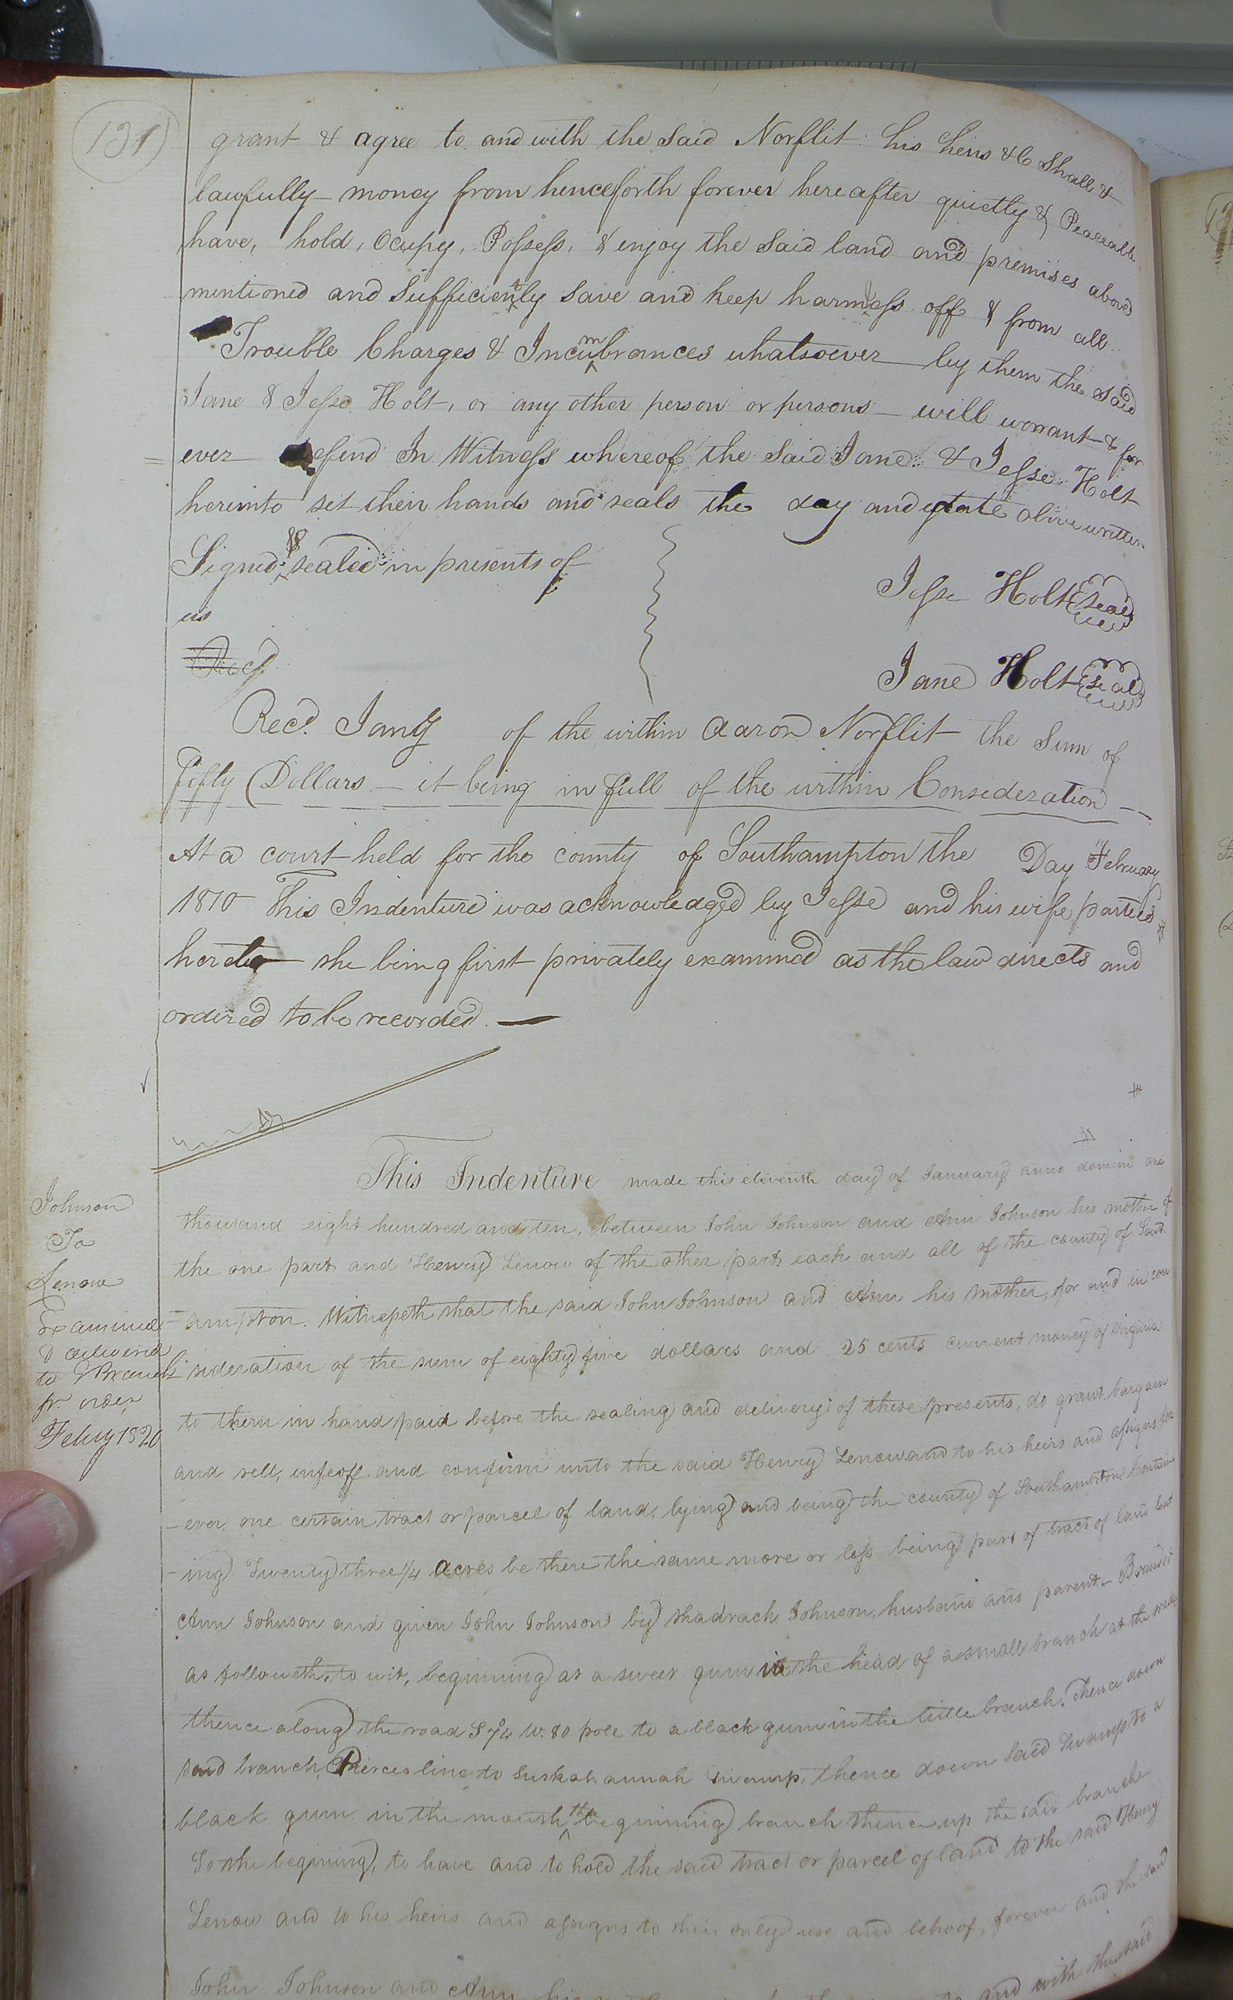 131
grant & agree to and with the Said Norflit his heirs &C Shall &
lawfully money from henceforth forever hereafter quietly & Peaceab
have, hold, Ocupy, Possess, & enjoy the Said land and premises above
mentioned and Sufficiently Save and keep harmless off & from all
Trouble Charges & Incumbrances whatsoever by them the said
Jane & Jesse Holt, or any other person or persons will warrant & for
ever defend In Witness whereof the Said Jane & Jesse Holt
hereunto set their hands and seals the day and date above written
Signed & sealed in presents of
us
Jesse Holt Seal
Jane Holt Seal
Recd. Jany of the within Aaron Norflit the Sum of
fifty Dollars - it being in full of the within Consideration
At a court held for the county of Southampton the Day February
1810 This Indenture was acknowledged by Jesse and his wife parties
hereto she being first privately examined as the law directs and
ordered to be recorded.
Johnson
To
Lenow
Examined
& delivered
to
pr order
Feby 1820
This Indenture made this eleventh day of January anno domini one
thousand eight hundred and ten, between John Johnson and Ann Johnson his mother of
the one part and Henry Lenow of the other part each and all of the county of South
ampton. Witnesseth that the said John Johnson and Ann his mother, for and in con
sideration of the sum of eighty five dollars and 25 cents current money of Virginia
to them in hand paid before the sealing and delivery of these presents, do grant bargain
and sell, infeoff and confirm unto the said Henry Lenow and to his heirs and assigns for
ever one certain tract or parcel of land, lying and being the county of Southampton contain
ing Twenty three 1/4 acres be there the same more or less being part of tract of land
Ann Johnson and given John Johnson by Shadrach Johnson, husband and parent - Bounded
as followeth, to wit, beginning at a sweet gum in the head of a small branch at the road
thence along the road S 74 W. 80 pole to a black gum in the little branch. Thence down
said branch, Pierces line to Suskahannah Swamp, thence down said Swamp to a
black gum in the mouth the beginning branch thence up the said branch
To the begining, to have and to hold the said tract or parcel of land to the said Henry
Lenow and to his heirs and assigns to their only use and behoof forever and the said
John Johnson and Ann his and with the said